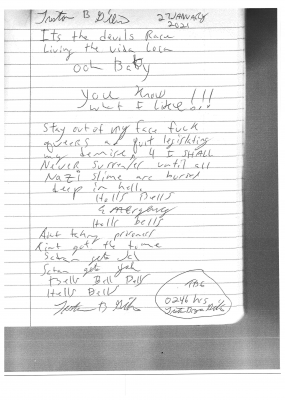 Triston B
27 JANUARY
2021
Its the devils Race
Living the vida Loca
ooh Baby
You Know !!!
what I like...
Stay out of my face fuck
queers and quit legislating
my demise, 4 I SHALL
Never Surrender until all
Nazi slime are buried
deep in hell.
Hells Bells
Hells bells
Aint taking prisoners
Aint got the time
Satan gets
Satan gets yah
Bells Bell Bells
Hells Bells
B
0246 hrs